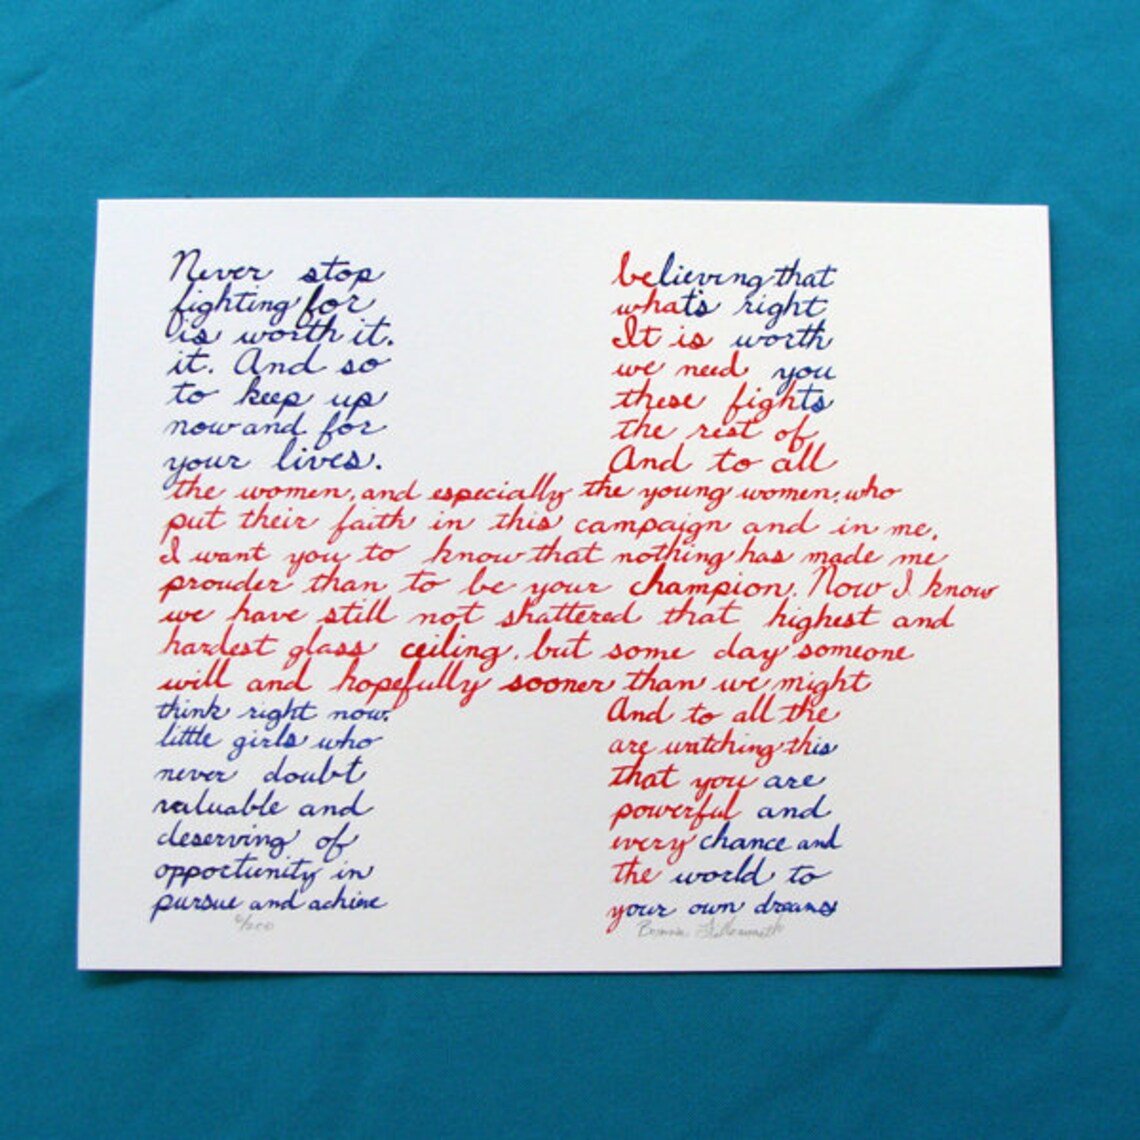 Never stop believing that
fighting for what's right
is worth it. It is worth
it. And so we need you
to keep up these fights
now and for the rest of
your lives. And to all
the women, and especially the young women, who
put their faith in this campaign and in me,
I want you to know that nothing has made me
prouder than to be your champion. Now I know
we have still not shattered that highest and
hardest glass ceiling, but some day someone
will and hopefully sooner than we might
think right now. And to all the
little girls who are watching this
never doubt that you are
valuable and powerful and
deserving of every chance and
opportunity in the world to
pursue and achieve your own dreams
6/200 Bonnie